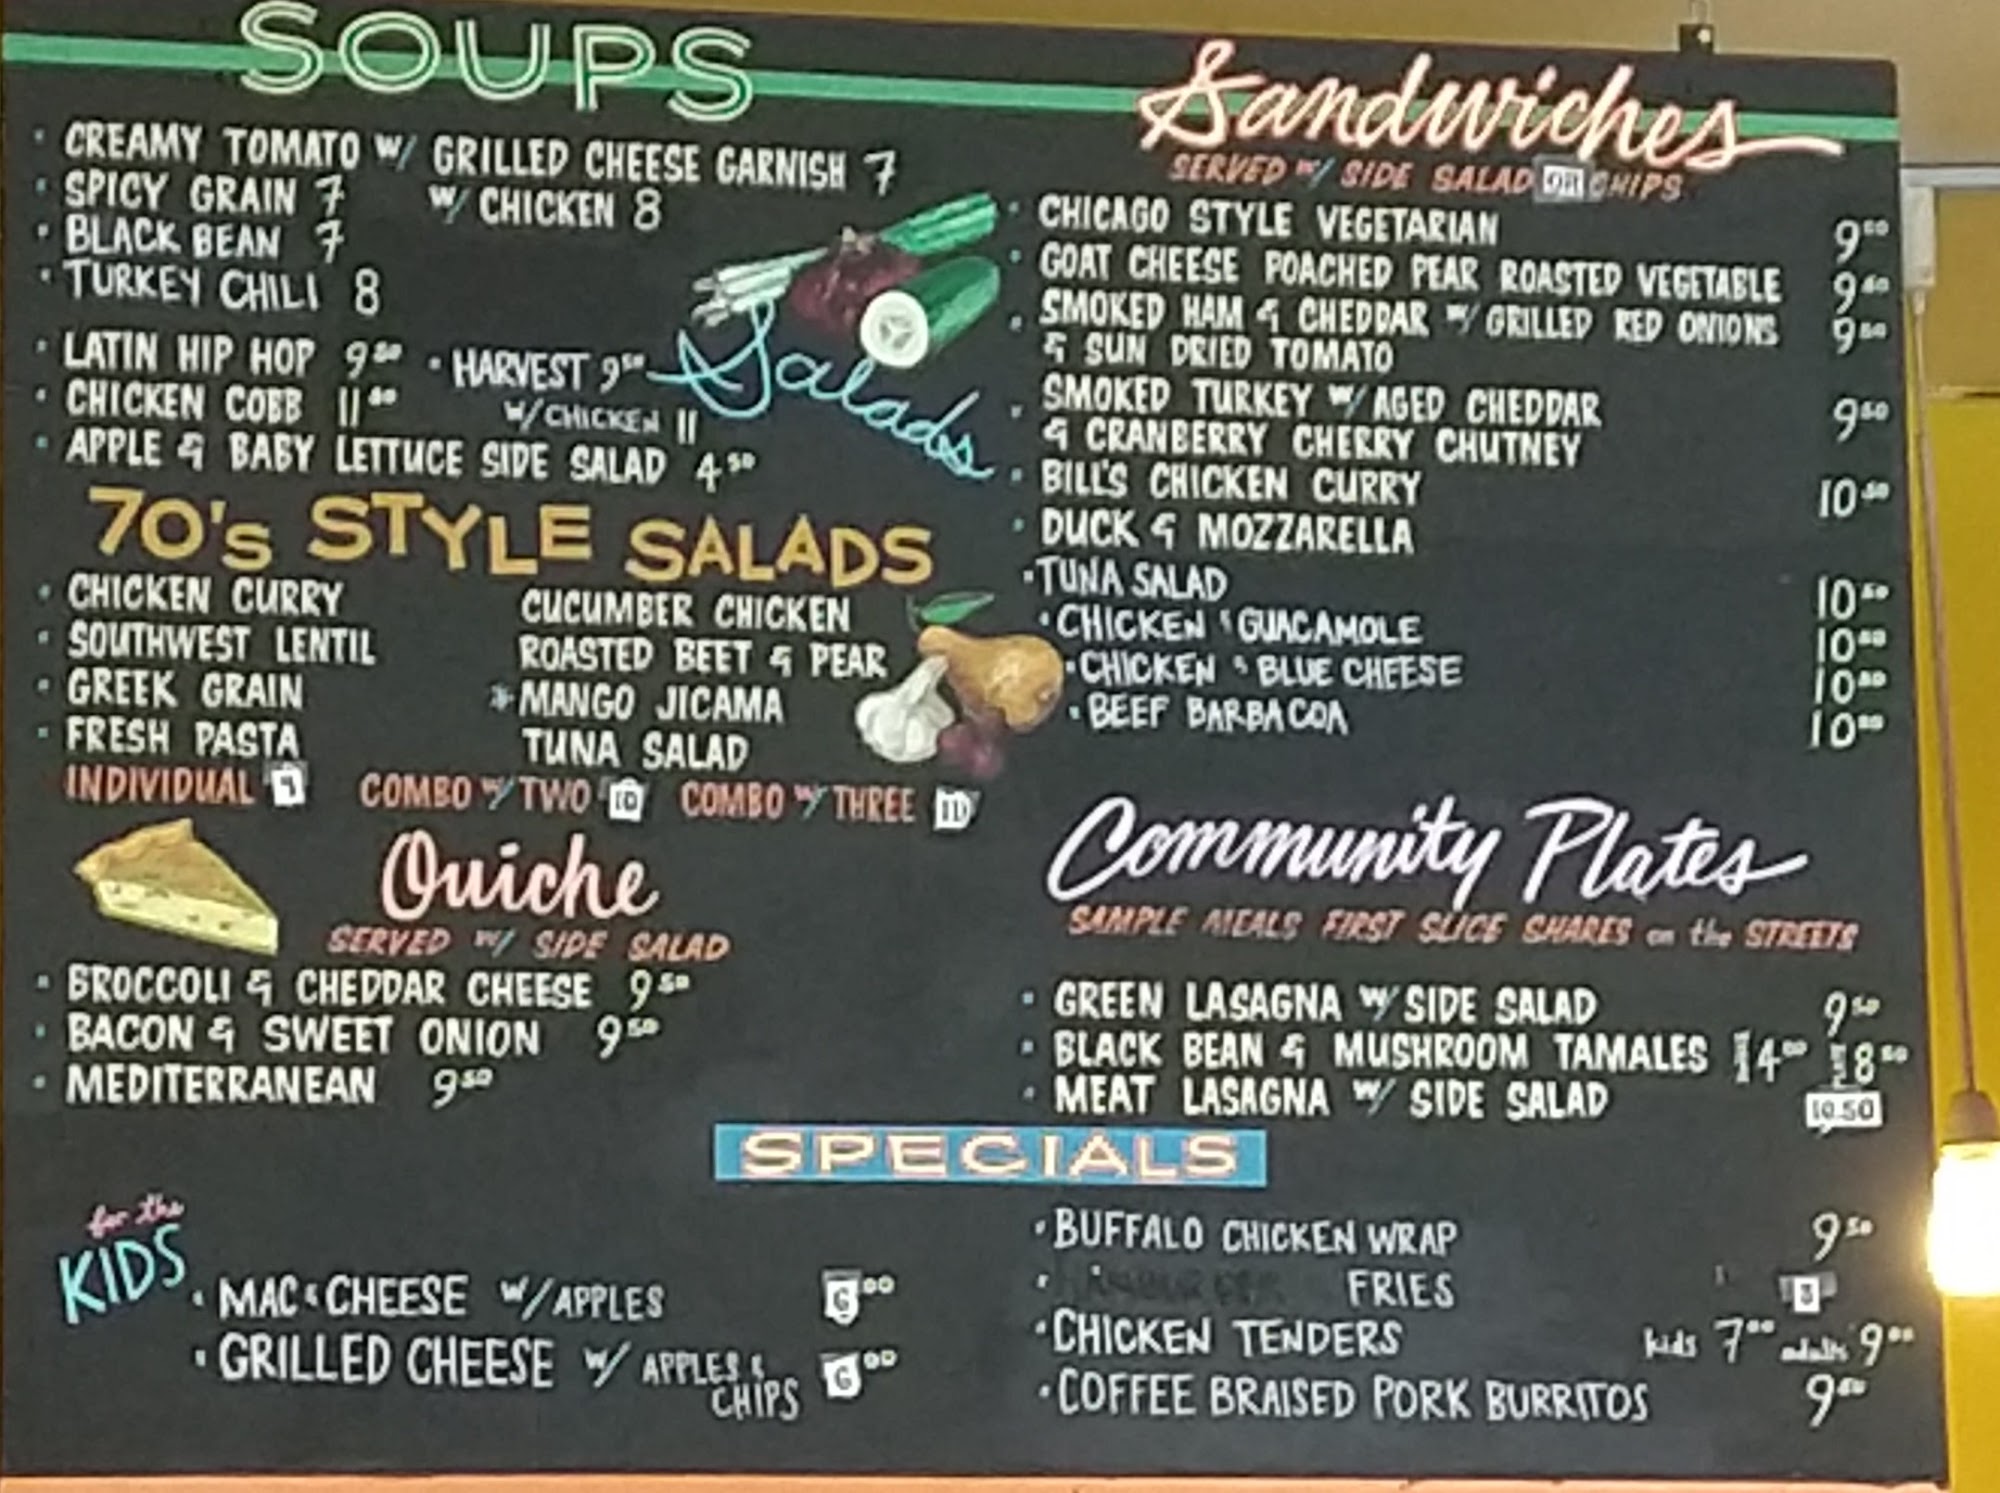 SOUPS
• CREAMY TOMATO W/ GRILLED CHEESE GARNISH 7
• SPICY GRAIN 7 W/ CHICKEN 8
• BLACK BEAN 7
• TURKEY CHILI 8
Salads
• LATIN HIP HOP 9⁵⁰ • HARVEST 9⁵⁰
• CHICKEN COBB 11⁵⁰ W/CHICKEN 11
• APPLE & BABY LETTUCE SIDE SALAD 4⁵⁰
70's STYLE SALADS
• CHICKEN CURRY CUCUMBER CHICKEN
• SOUTHWEST LENTIL ROASTED BEET & PEAR
• GREEK GRAIN * MANGO JICAMA
• FRESH PASTA TUNA SALAD
INDIVIDUAL 9 COMBO W/ TWO 10 COMBO W/ THREE 11
Quiche
SERVED W/ SIDE SALAD
• BROCCOLI & CHEDDAR CHEESE 9⁵⁰
• BACON & SWEET ONION 9⁵⁰
• MEDITERRANEAN 9⁵⁰
Sandwiches
SERVED W/ SIDE SALAD OR CHIPS
• CHICAGO STYLE VEGETARIAN 9⁵⁰
• GOAT CHEESE POACHED PEAR ROASTED VEGETABLE 9⁵⁰
• SMOKED HAM & CHEDDAR W/ GRILLED RED ONIONS 9⁵⁰
& SUN DRIED TOMATO
• SMOKED TURKEY W/ AGED CHEDDAR 9⁵⁰
& CRANBERRY CHERRY CHUTNEY
• BILL'S CHICKEN CURRY 10⁵⁰
• DUCK & MOZZARELLA
• TUNA SALAD 10⁵⁰
• CHICKEN & GUACAMOLE 10⁵⁰
• CHICKEN & BLUE CHEESE 10⁵⁰
• BEEF BARBACOA 10⁵⁰
Community Plates
SAMPLE MEALS FIRST SLICE SHARES on the STREETS
• GREEN LASAGNA W/ SIDE SALAD 9⁵⁰
• BLACK BEAN & MUSHROOM TAMALES 14⁰⁰ 18⁵⁰
• MEAT LASAGNA W/ SIDE SALAD 10.50
SPECIALS
for the
KIDS
• MAC & CHEESE W/ APPLES 6⁰⁰
• GRILLED CHEESE W/ APPLES & 6⁰⁰
CHIPS
• BUFFALO CHICKEN WRAP 9⁵⁰
• FRIES 3
• CHICKEN TENDERS kids 7⁰⁰ adults 9⁰⁰
• COFFEE BRAISED PORK BURRITOS 9⁵⁰